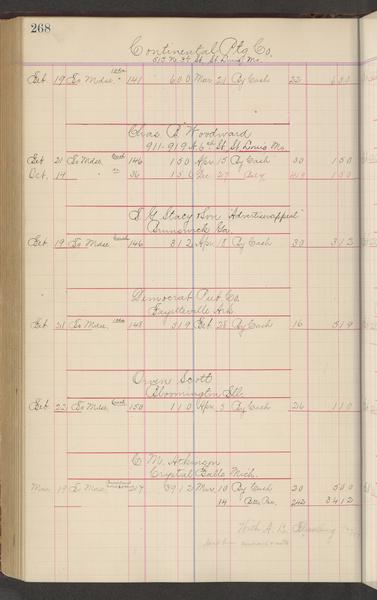 268
Continental Ptg Co.
St. Louis Mo.
Feb 19 To Mdse 141 600 Mar 21 By Cash 22 600
Chas B Woodward
911-919 N. 6th St. St. Louis Mo
Feb 21 To Mdse 146 150 Apr 15 By Cash 30 150
Oct. 14 36 150 Dec 27
E. G. Stacy & Son "Advertiser Appeal"
Brunswick Ga
Feb 19 To Mdse 146 312 Apr 18 By Cash 30 312
Democrat Pub Co.
Fayetteville Ark.
Feb 21 To Mdse 148 519 Feb 28 By Cash 16 519
Owen Scott
Bloomington Ill.
Feb 22 To Mdse 150 110 Apr 5 By Cash 26 110
C. M. Atkinson
Crystal Falls Mich.
Mar 19 To Mdse 207 3912 Mar 10 By Cash 20 500
14 Bills Rec. 242 3412
With A. B.